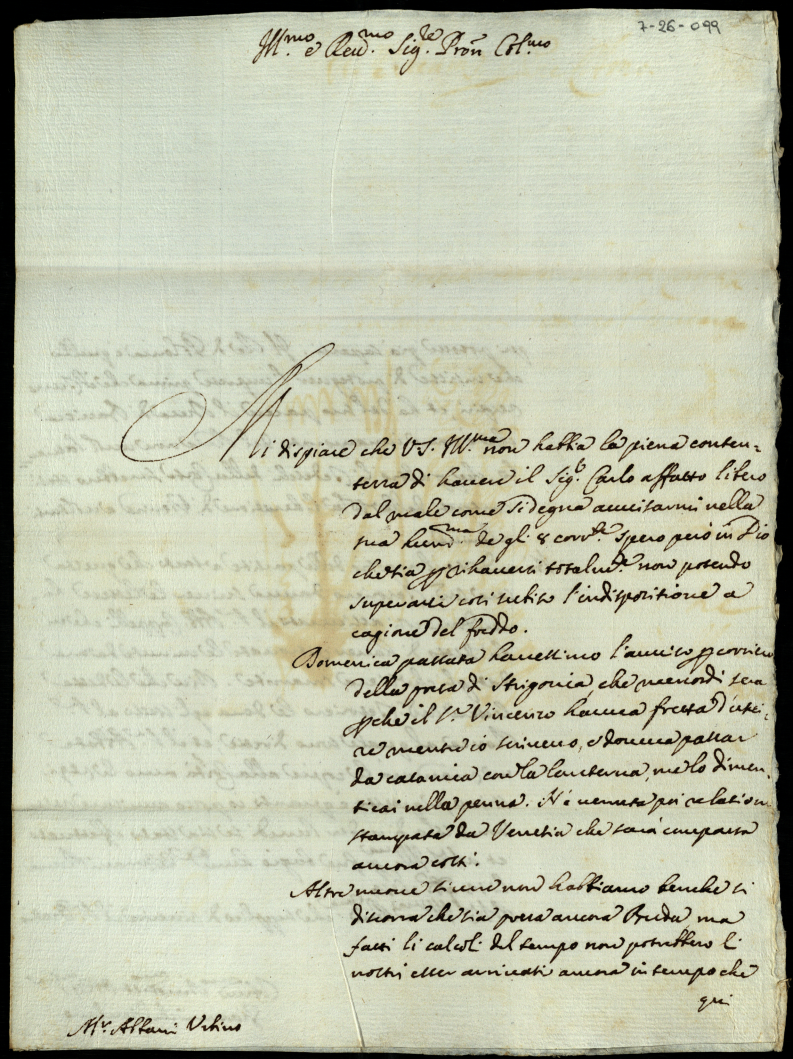 7-26-099
Ill.mo e Rev.mo Sig.re Pron Col.mo
Mi dispiace che V.S. Ill.ma non habbia la piena conten-
tezza di havere il Sig.r Carlo affatto libero
dal male come si degna avvisarmi nella
sua hum.ma de gli 8 corr.te. Spero però in Dio
che sia p rihaversi totalm.te non potendo
superarsi così subito l'indispositione a
cagione del freddo.
Domenica passata havessimo l'avviso p corriero
della presa di Strigonia, che mercordì sera
pche il S.r Vincenzo haveva fretta d'usci-
re mentre io scrivevo, e doveva passar
da catanica con la lanterna, me lo dimen-
ticai nella penna. N'è venuta poi relation
stampata da Venetia che sarà comparsa
ancora costì.
Altre nuove sicure non habbiamo benche si
discorra che sia presa ancora Buda ma
fatti li calcoli del tempo non potrebbero li
nostri esser arrivati ancora in tempo che
qui
Mr. Albani Urbino